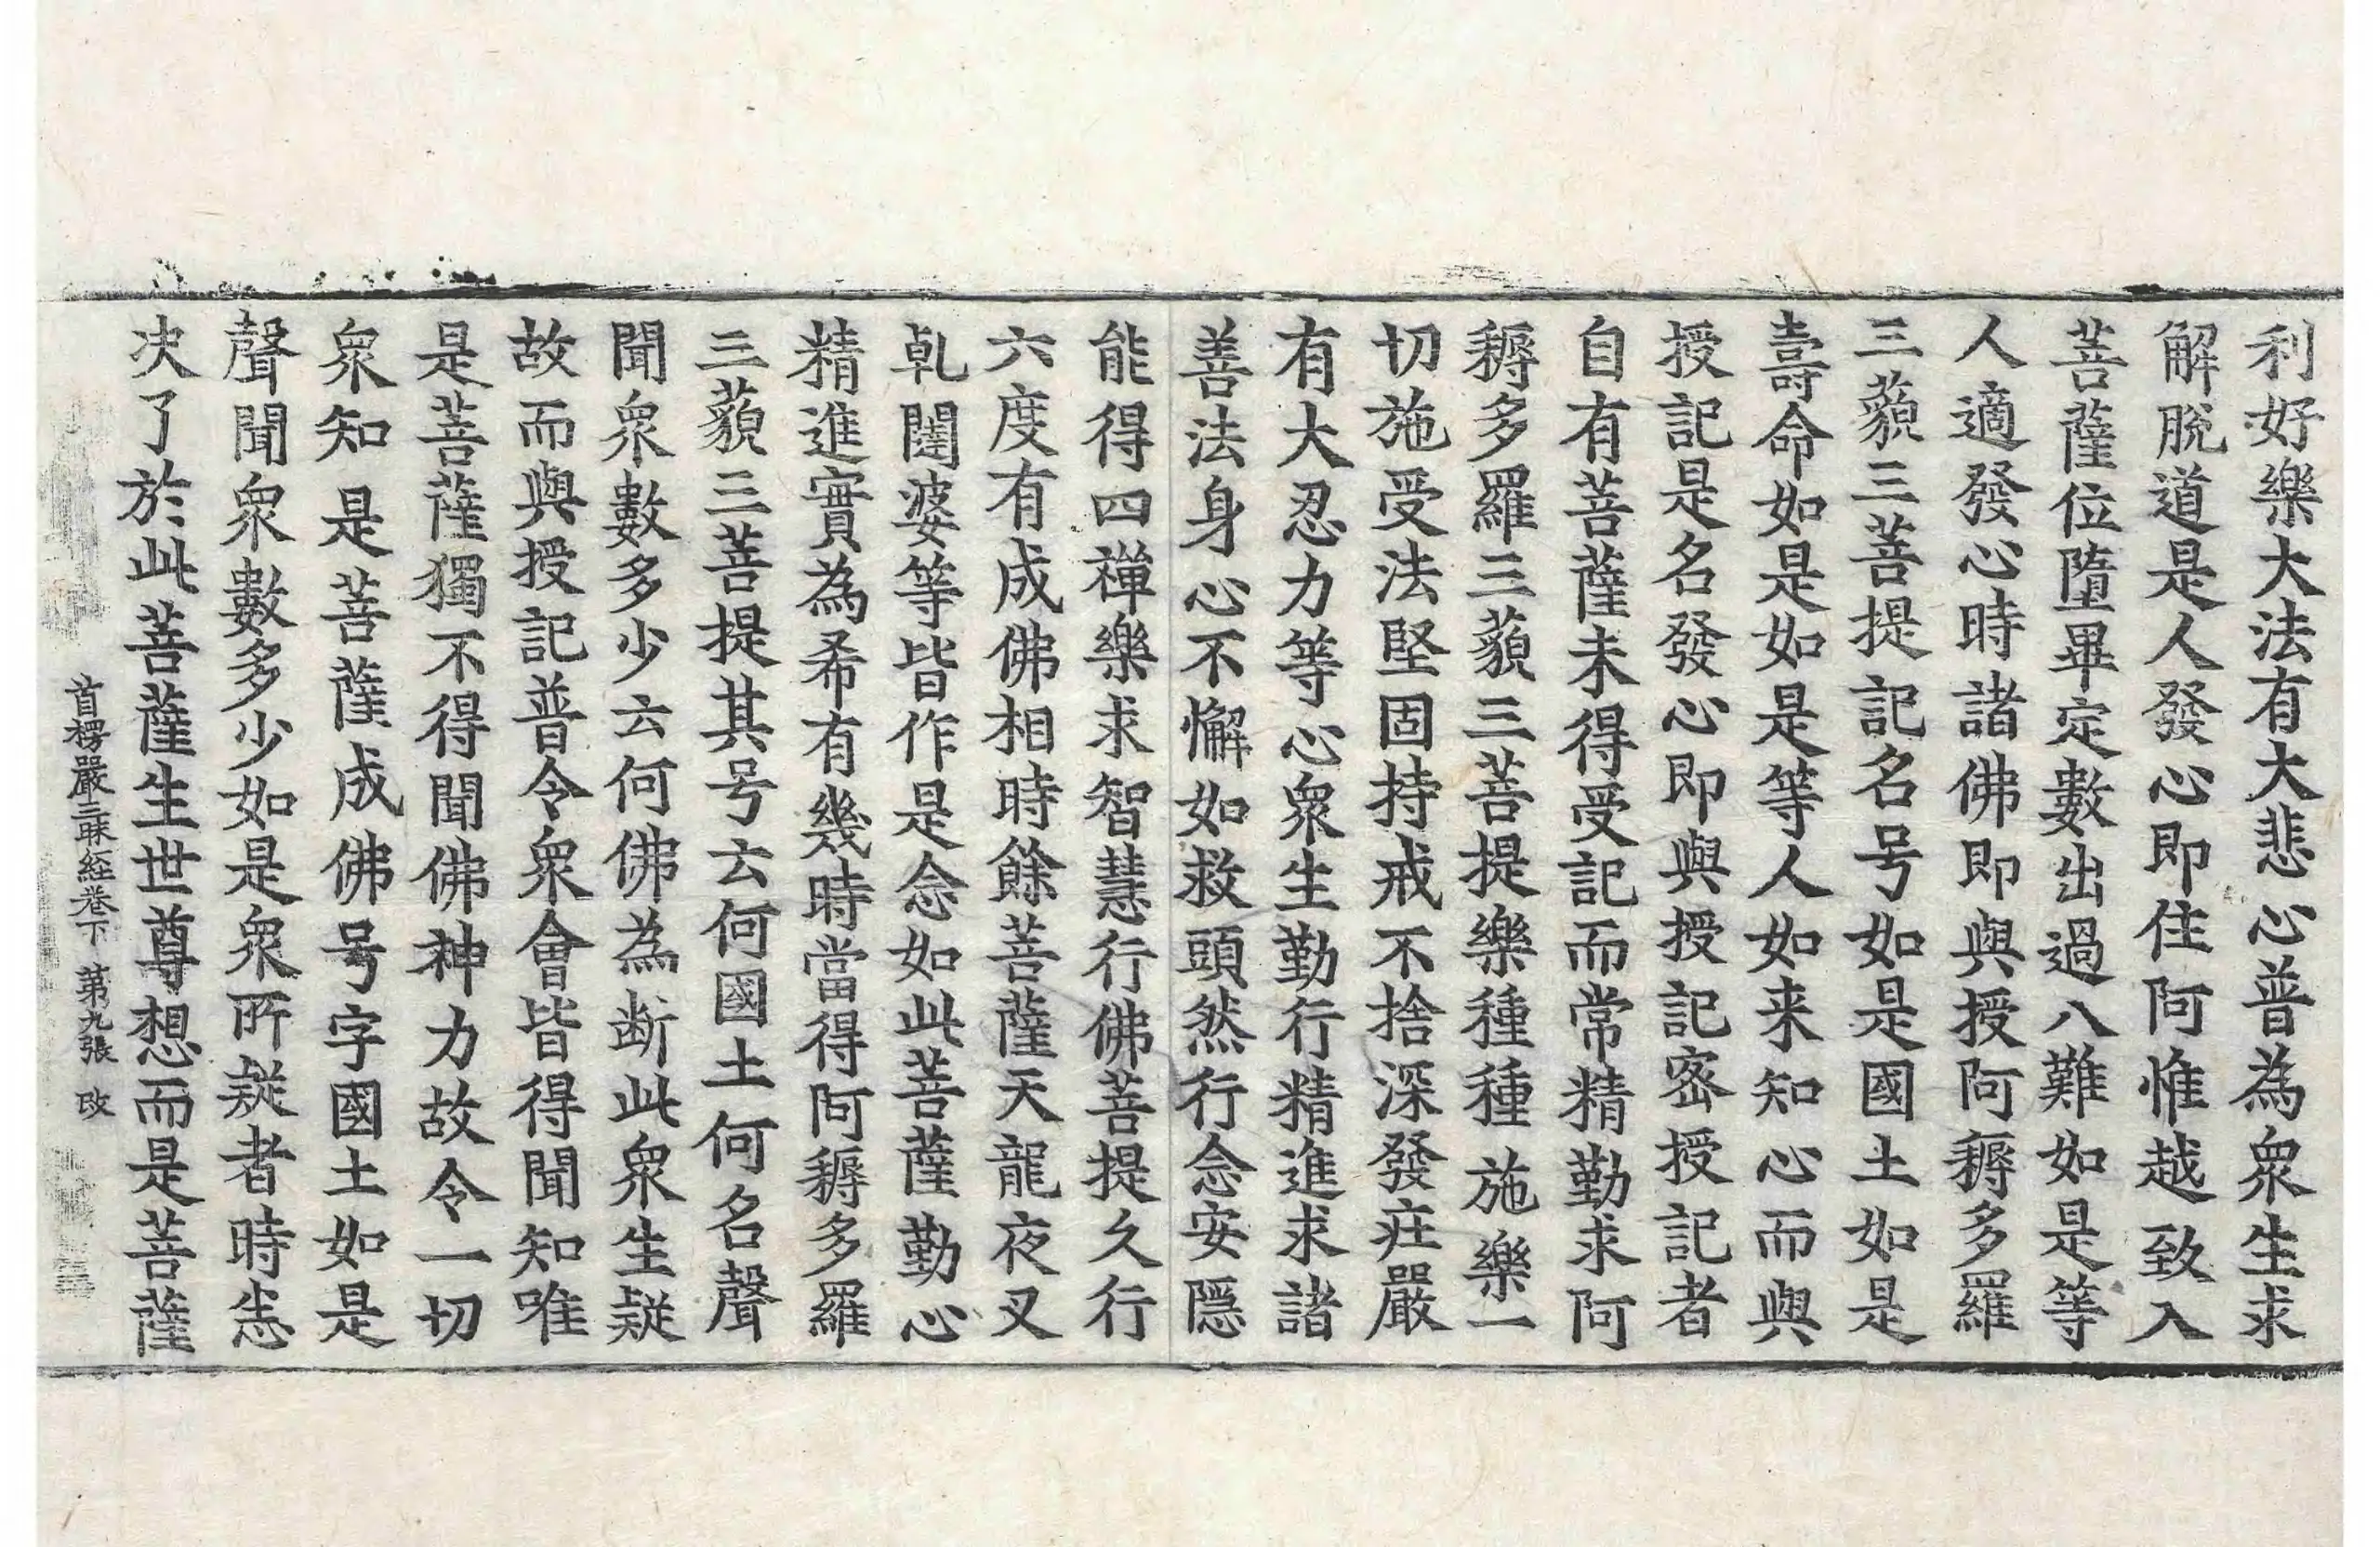 利好樂大法有大悲心普為衆生求
解脫道是人發心即住阿惟越致入
菩薩位墮畢定數出過八難如是等
人適發心時諸佛即與授阿耨多羅
三藐三菩提記名号如是國土如是
壽命如是如是等人如来知心而與
授記是名發心即與授記密授記者
自有菩薩未得受記而常精勤求阿
耨多羅三藐三菩提樂種種施樂一
切施受法堅固持戒不捨深發莊嚴
有大忍力等心衆生勤行精進求諸
善法身心不懈如救頭然行念安隱
能得四禪樂求智慧行佛菩提久行
六度有成佛相時餘菩薩天龍夜叉
乹闥婆等皆作是念如此菩薩勤心
精進實為希有幾時當得阿耨多羅
三藐三菩提其号云何國土何名聲
聞衆數多少云何佛為断此衆生疑
故而與授記普令衆會皆得聞知唯
是菩薩獨不得聞佛神力故令一切
衆知是菩薩成佛号字國土如是
聲聞衆數多少如是衆所疑者時悉
决了於此菩薩生世尊想而是菩薩
首楞嚴三昧経卷下 第九張 改